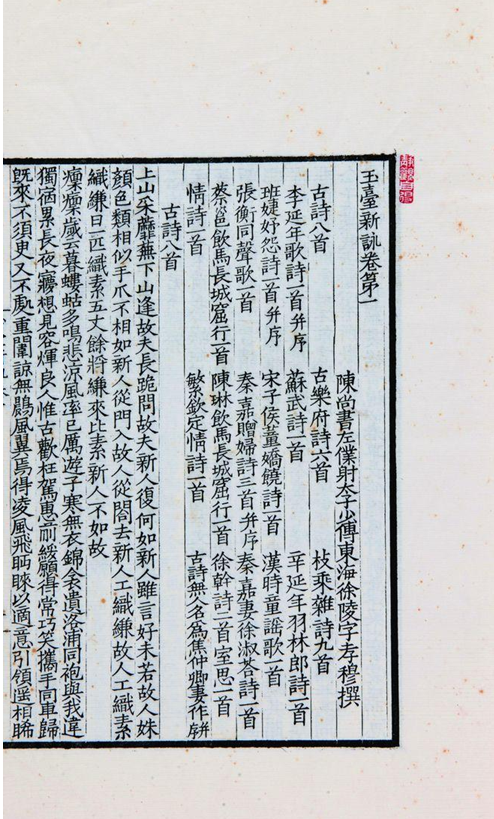 玉臺新詠卷第一
陳尚書左僕射太子少傅東海徐陵字孝穆撰
古詩八首 古樂府詩六首 枚乘雜詩九首
李延年歌詩一首并序 蘇武詩一首 辛延年羽林郎詩一首
班婕妤怨詩一首并序 宋子侯董嬌饒詩一首 漢時童謡歌一首
張衡同聲歌一首 秦嘉贈婦詩三首并序 秦嘉妻徐淑荅詩一首
蔡邕飲馬長城窟行一首 陳琳飲馬長城窟行一首 徐幹詩二首室思一首
情詩一首 繁欽定情詩一首 古詩無人名為焦仲卿妻作并
古詩八首
上山采蘼蕪下山逢故夫長跪問故夫新人復何如新人雖言好未若故人姝
顔色類相似手爪不相如新人從門入故人從閤去新人工織縑故人工織素
織縑日一匹織素五丈餘將縑來比素新人不如故
凜凜歲云暮螻蛄多鳴悲涼風率已厲遊子寒無衣錦衾遺洛浦同袍與我違
獨宿累長夜夢想見容輝良人惟古歡枉駕惠前綏願得常巧笑攜手同車歸
既來不須臾又不處重闈諒無鷐風翼焉得凌風飛眄睞以適意引領遥相睎